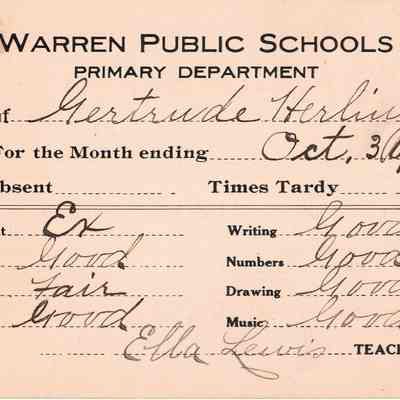 WARREN PUBLIC SCHOOLS
PRIMARY DEPARTMENT
of Gertrude
For the Month ending Oct, 3
bsent Times Tardy
t Ex Writing Good
Good Numbers Good
Fair Drawing Good
Good Music Good
Ella Lewis TEAC